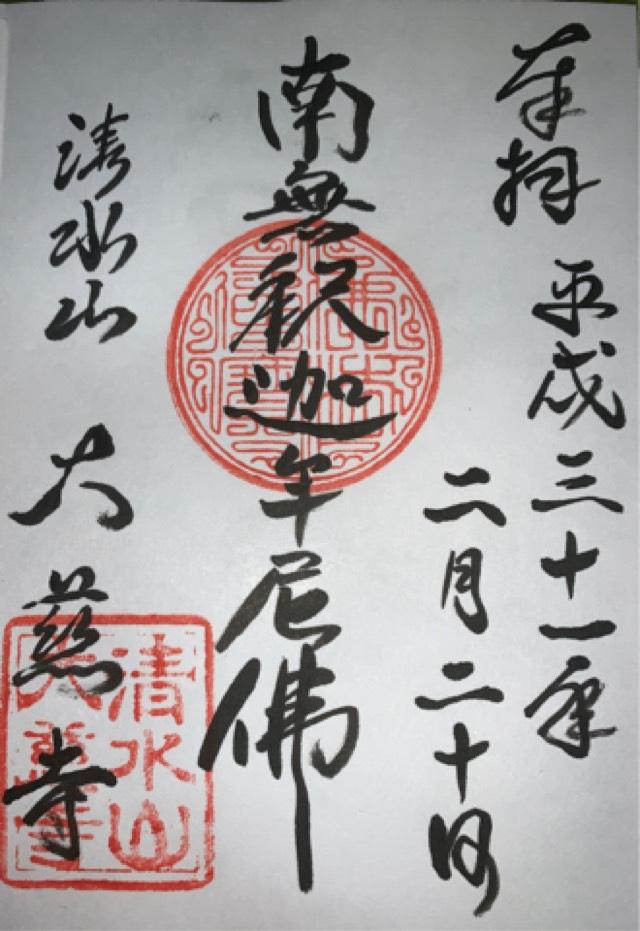 奉拝 平成三十一年
二月二十日
南無釈迦牟尼佛
清水山 大慈寺
清水山
大慈寺